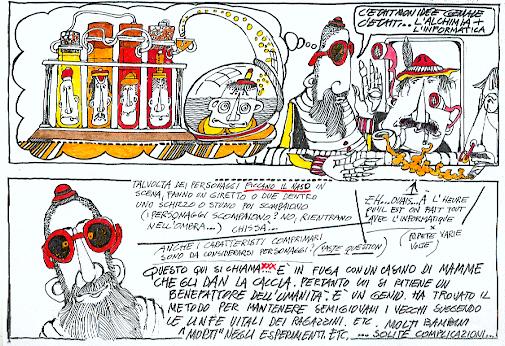 C'ÉTAIT MON IDÉE GÉNIALE
C'ÉTAIT... L'ALCHIMIA +
L'INFORMATICA
TALVOLTA DEI PERSONAGGI FICCANO IL NASO IN
SCENA, FANNO UN GIRETTO O DUE DENTRO
UNO SCHIZZO O STUDIO POI SCOMPAIONO
(I PERSONAGGI SCOMPAIONO? NO, RIENTRANO
NELL'OMBRA...) CHISSÀ...
ANCHE I CARATTERISTI COMPRIMARI
SONO DA CONSIDERARSI PERSONAGGI? (VASTE QUESTION)
EH... OUAIS... À L'HEURE
QU'IL EST ON FAIT TOUT
AVEC L'INFORMATIQUE
(RIPETE VARIE
VOLTE)
QUESTO QUI SI CHIAMA XXX È IN FUGA CON UN CASINO DI MAMME
CHE GLI DAN LA CACCIA. PERTANTO LUI SI RITIENE UN
BENEFATTORE DELL'UMANITÀ: È UN GENIO. HA TROVATO IL
METODO PER MANTENERE SEMIGIOVANI I VECCHI SUGGENDO
LE LINFE VITALI DEI RAGAZZINI. ETC. MOLTI BAMBINI
"MORTI" NEGLI ESPERIMENTI. ETC. ... SOLITE COMPLICAZIONI...